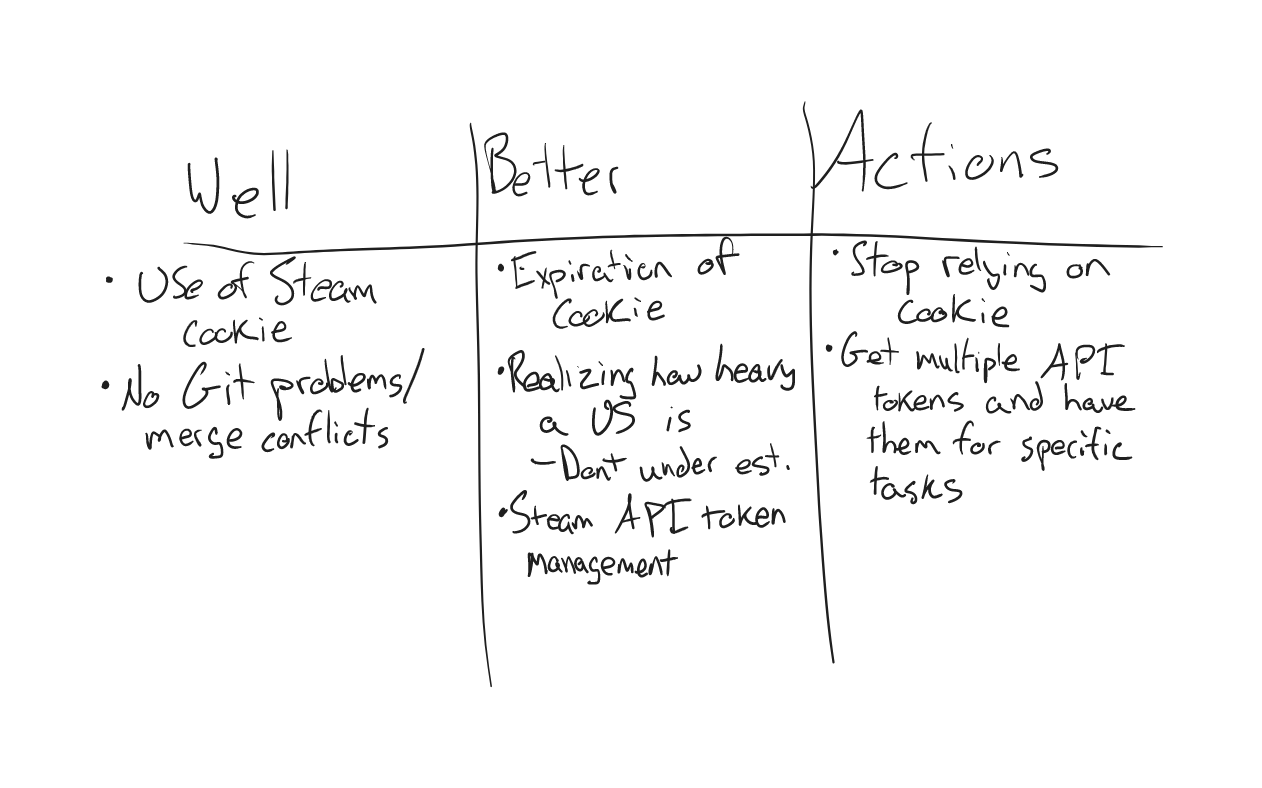 Well
• Use of Steam
Cookie
• No Git problems/
merge conflicts
Better
• Expiration of
Cookie
• Realizing how heavy
a US is
- Dont under est.
• Steam API token
management
Actions
• Stop relying on
Cookie
• Get multiple API
tokens and have
them for specific
tasks